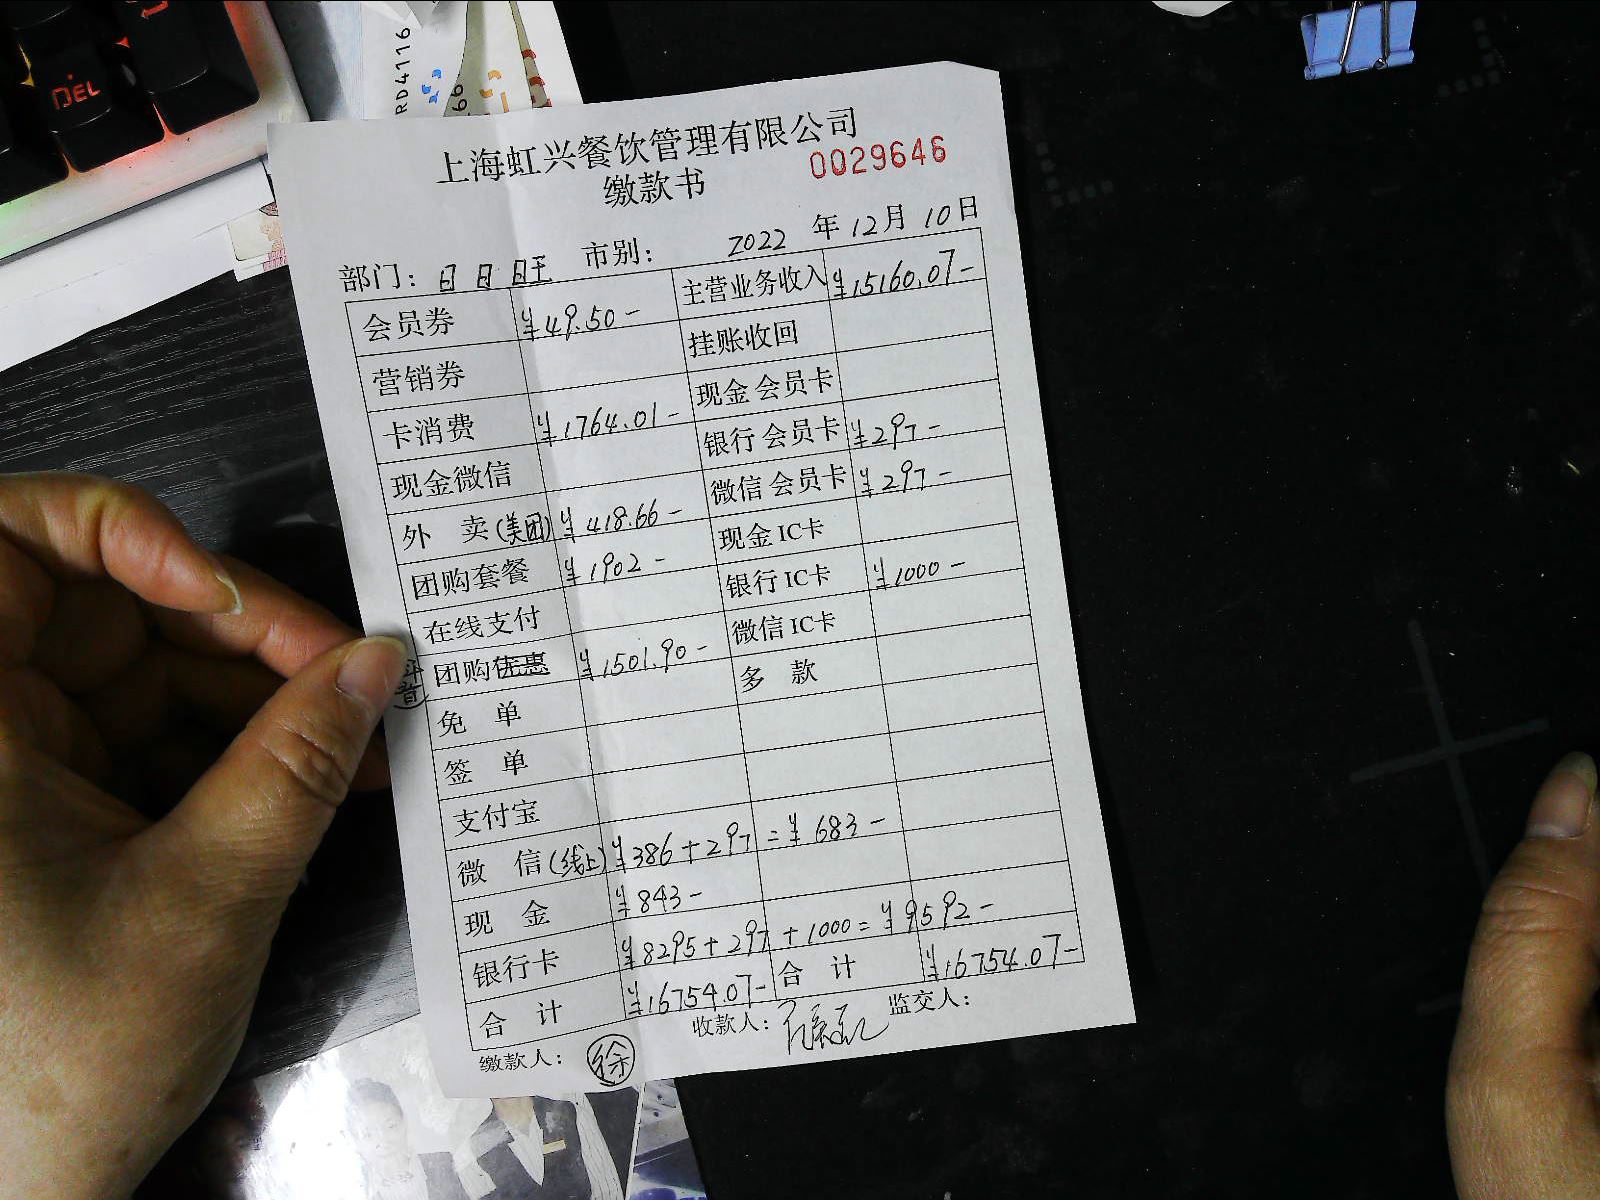 DEL
RD4116
66
上海虹兴餐饮管理有限公司
缴款书 0029646
部门：日日旺 市别： 2022 年 12月 10日
会员券 ¥49.50- 主营业务收入 ¥15160.07-
营销券 挂账收回
卡消费 ¥1764.01- 现金会员卡
现金微信 银行会员卡 ¥297-
外 卖(美团) ¥418.66- 微信会员卡 ¥297-
团购套餐 ¥1902- 现金IC卡
在线支付 银行IC卡 ¥1000-
抖音 团购优惠 ¥1501.90- 微信IC卡
免 单 多 款
签 单
支付宝
微 信(线上) ¥386+297=¥683-
现 金 ¥843-
银行卡 ¥8295+297+1000=¥9592-
合 计 ¥16754.07- 合 计 ¥16754.07-
缴款人： 徐 收款人： 监交人：